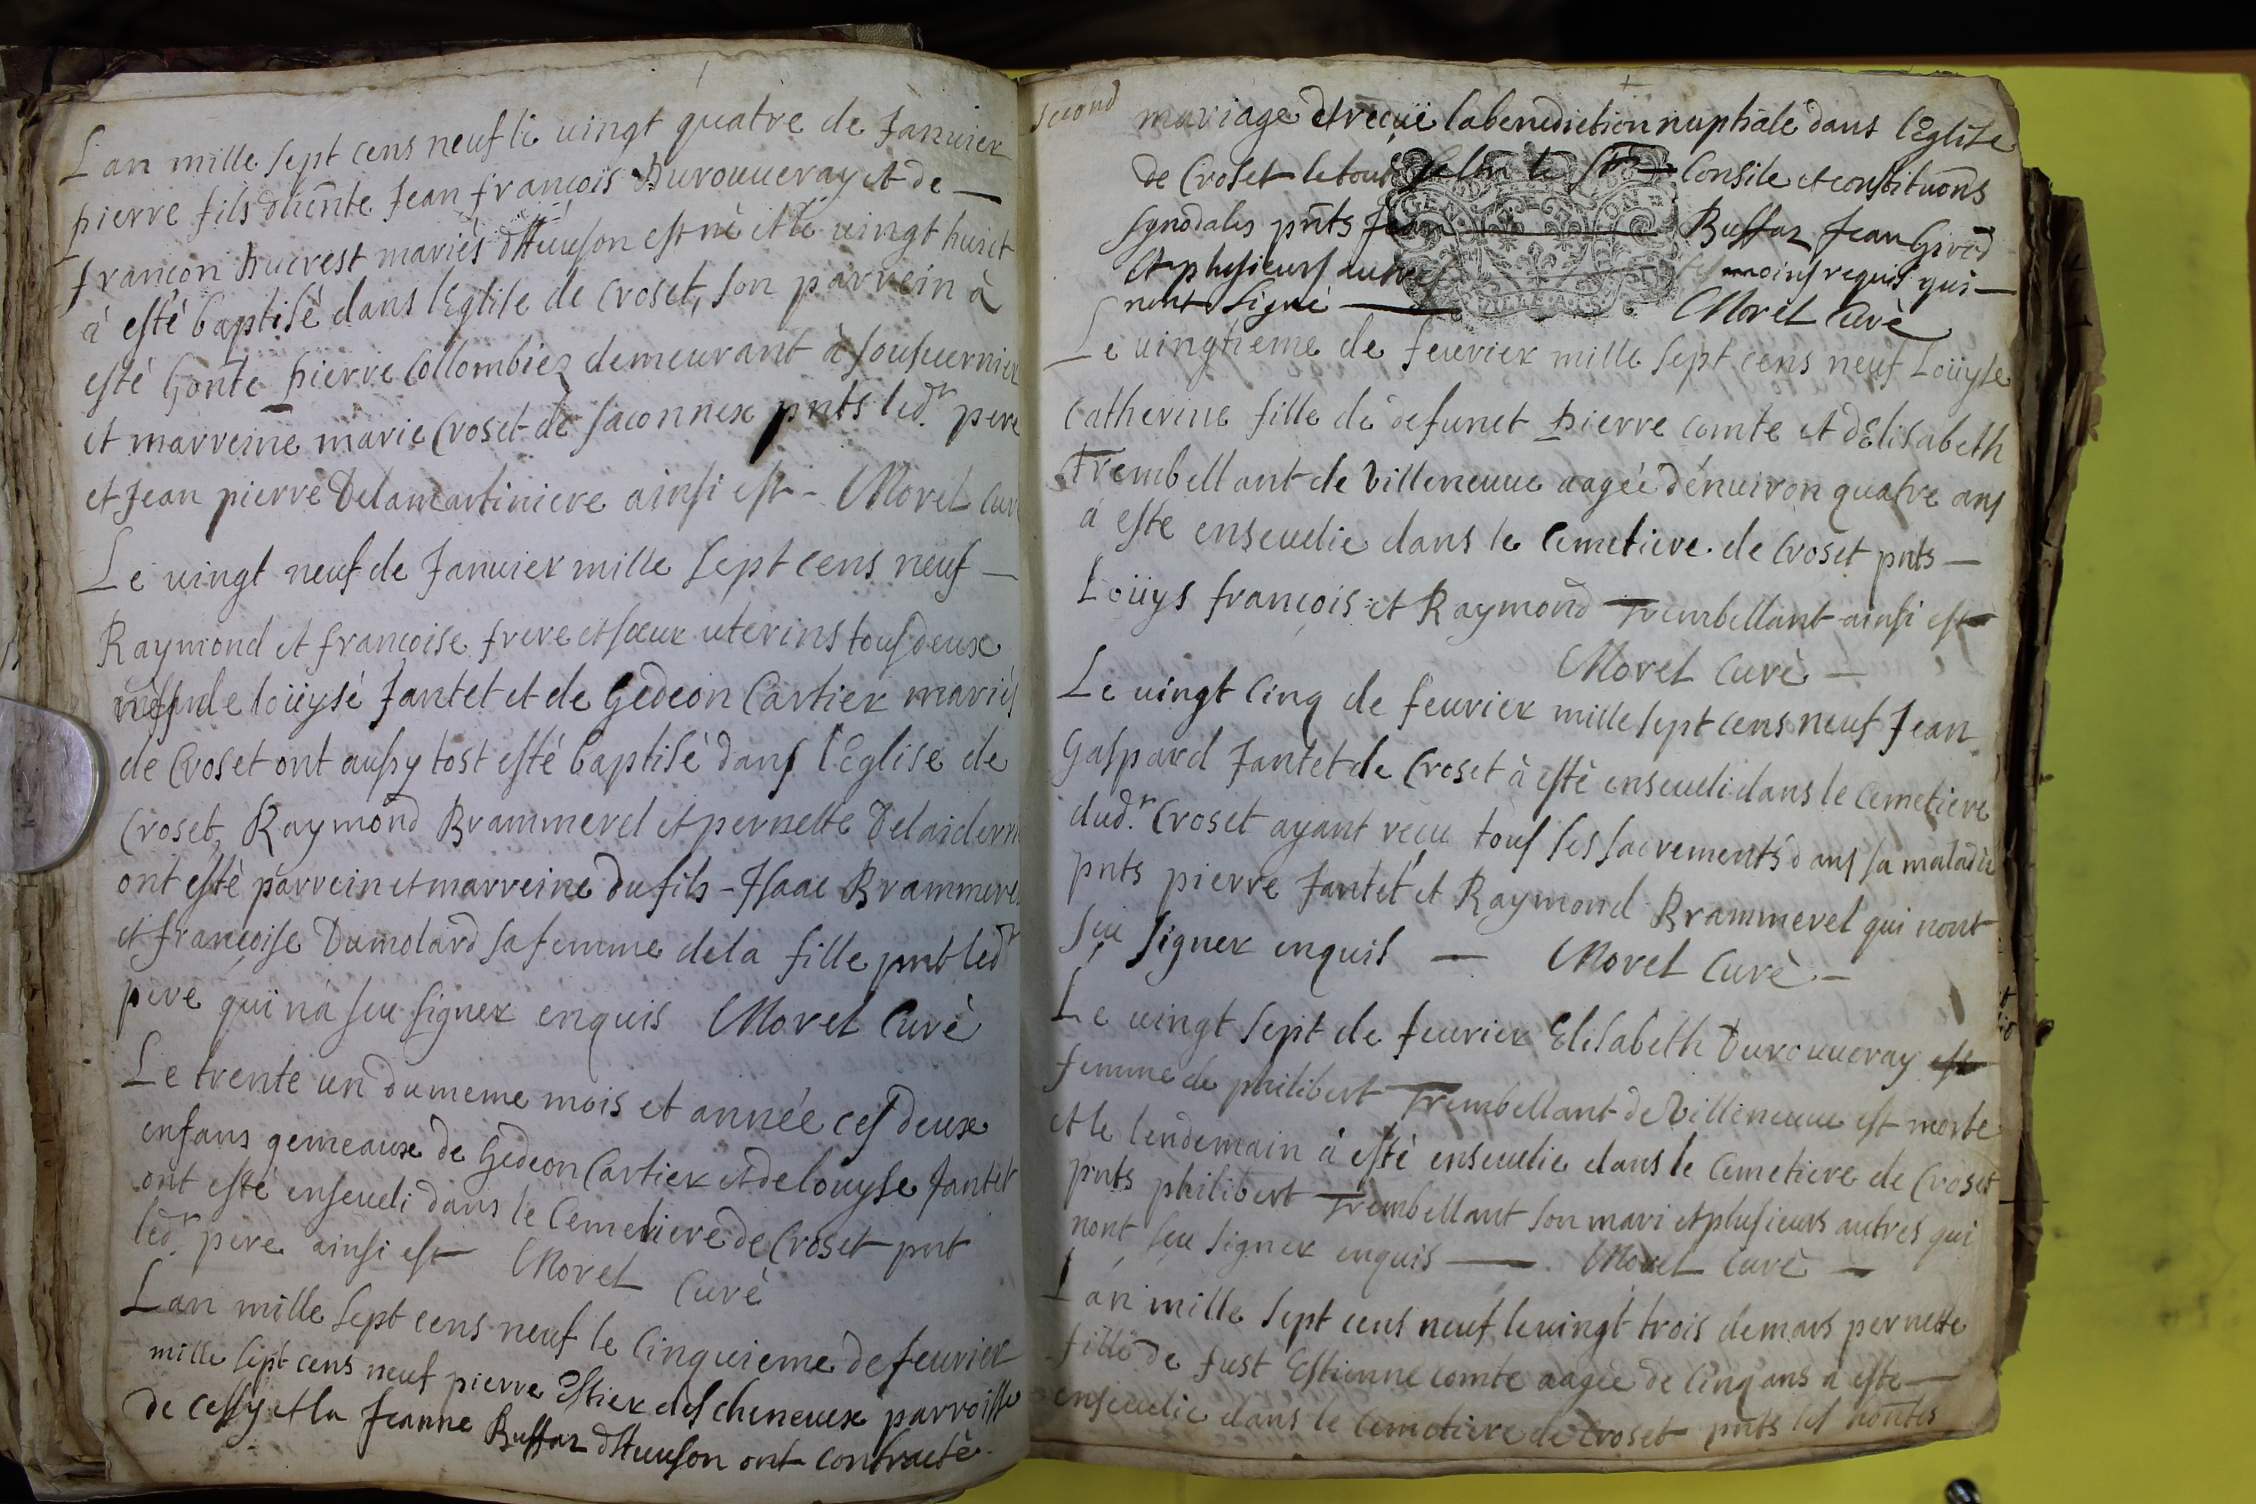 Lan mille sept cens neuf le vingt quatre de Janvier
pierre fils dhonte Jean françois Durouveray et de —
françon Ducrest mariés dHuuson est né et le vingt huict
à esté baptisé dans lEglise de Croset, son parrein à
esté honte pierre Collombier demeurant à Sousvernier
et marreine marie Croset de Saconnex pnts led.r pere
et Jean pierre Delamartiniere ainsi est - Morel Curé
Le vingt neuf de Janvier mille sept cens neuf —
Raymond et françoise frere et sœur uterins tous deux
de loüyse Jantet et de Gedeon Cartier mariés
de Croset ont aussy tost esté baptisé dans l'Eglise de
Croset, Raymond Brammerel et pernette
ont esté parrein et marreine du fils - Isaac Brammerel
et françoise Dumolard sa femme de la fille pnt led.r
pere qui na sçu signer enquis Morel Curé
Le trente un du meme mois et année ces deux
enfans gemeaux de Gedeon Cartier et de louyse Jantet
ont esté enseveli dans le Cemetiere de Croset pnt
led.r pere ainsi est Morel Curé
Lan mille sept cens neuf le Cinquieme de fevrier
mille sept cens neuf pierre Estier des cheneux parroisse
de Cessy et la Jeanne Buffaz dHuuson ont contracté
second mariage et reçüe la benediction nuptiale dans lEglise
de Croset le tout selon le St Consile et constituons
synodales pnts Jean Buffaz Jean Girod
et plusieurs autres moins requis qui —
nont signé — Morel Curé
Le vingtieme de fevrier mille sept cens neuf Loüyse
Catherine fille de defunct pierre comte et dElisabeth
Trembellant de Villeneuve aagée d'environ quatre ans
à esté ensevelie dans le Cemetiere de Croset pnts —
Loüys françois et Raymond Trembellant ainsi est
Morel Curé —
Le vingt Cinq de fevrier mille sept cens neuf Jean
Gaspard Jantet de Croset à esté enseveli dans le Cemetiere
dud.r Croset ayant reçu tous ses sacrements dans sa maladie
pnts pierre Jantet et Raymond Brammerel qui nont
sçu signer enquis — Morel Curé —
Le vingt sept de fevrier Elisabeth Durouveray est
femme de philibert Trembellant de Villeneuve est morte
et le lendemain à esté ensevelie dans le Cemetiere de Croset
pnts philibert Trembellant son mari et plusieurs autres qui
nont sçu signer enquis — Morel Curé —
Lan mille sept cens neuf le vingt trois de mars pernette
fille de Just Estienne comte aagée de Cinq ans à esté —
ensevelie dans le Cemetiere de Croset pnts les hontes